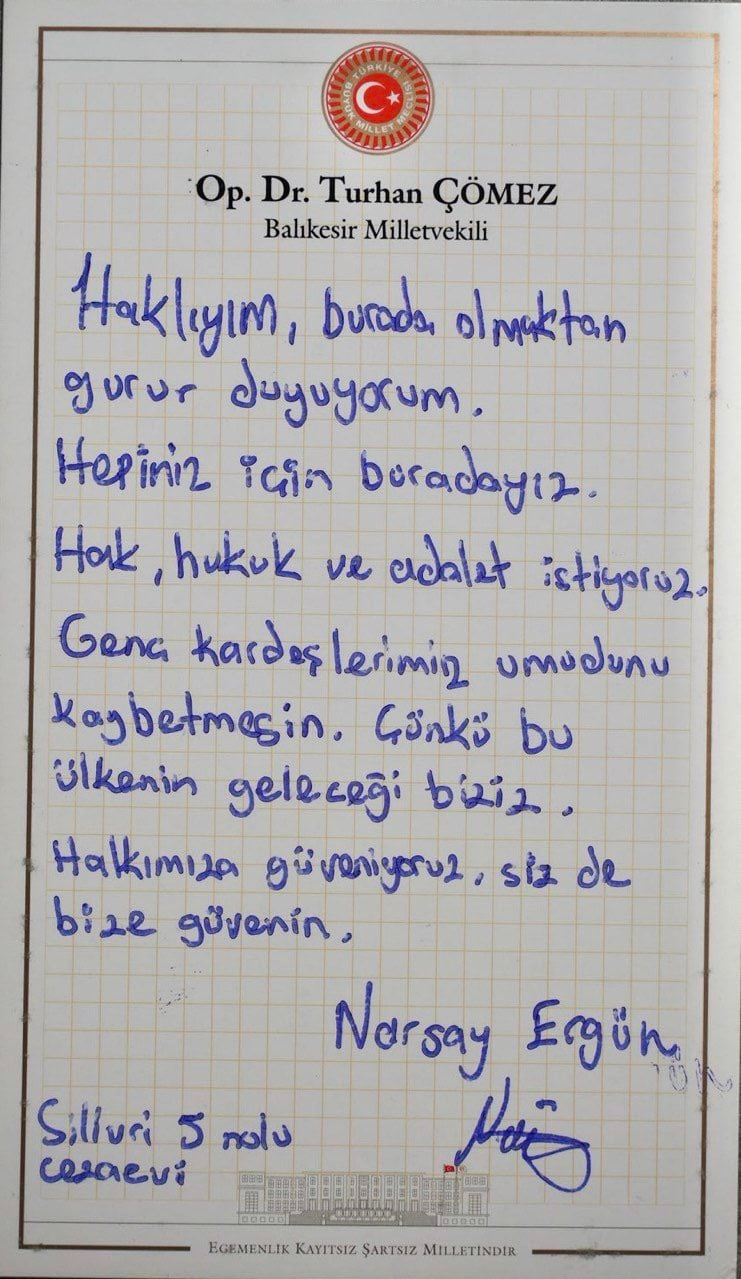 TÜRKİYE BÜYÜK MİLLET MECLİSİ
Op. Dr. Turhan ÇÖMEZ
Balıkesir Milletvekili
Haklıyım, burada olmaktan
gurur duyuyorum.
Hepiniz için buradayız.
Hak, hukuk ve adalet istiyoruz.
Genç kardeşlerimiz umudunu
kaybetmesin. Çünkü bu
ülkenin geleceği biziz.
Halkımıza güveniyoruz, siz de
bize güvenin.
Narsay Ergün
ün
Silivri 5 nolu
cezaevi
EGEMENLİK KAYITSIZ ŞARTSIZ MİLLETİNDİR